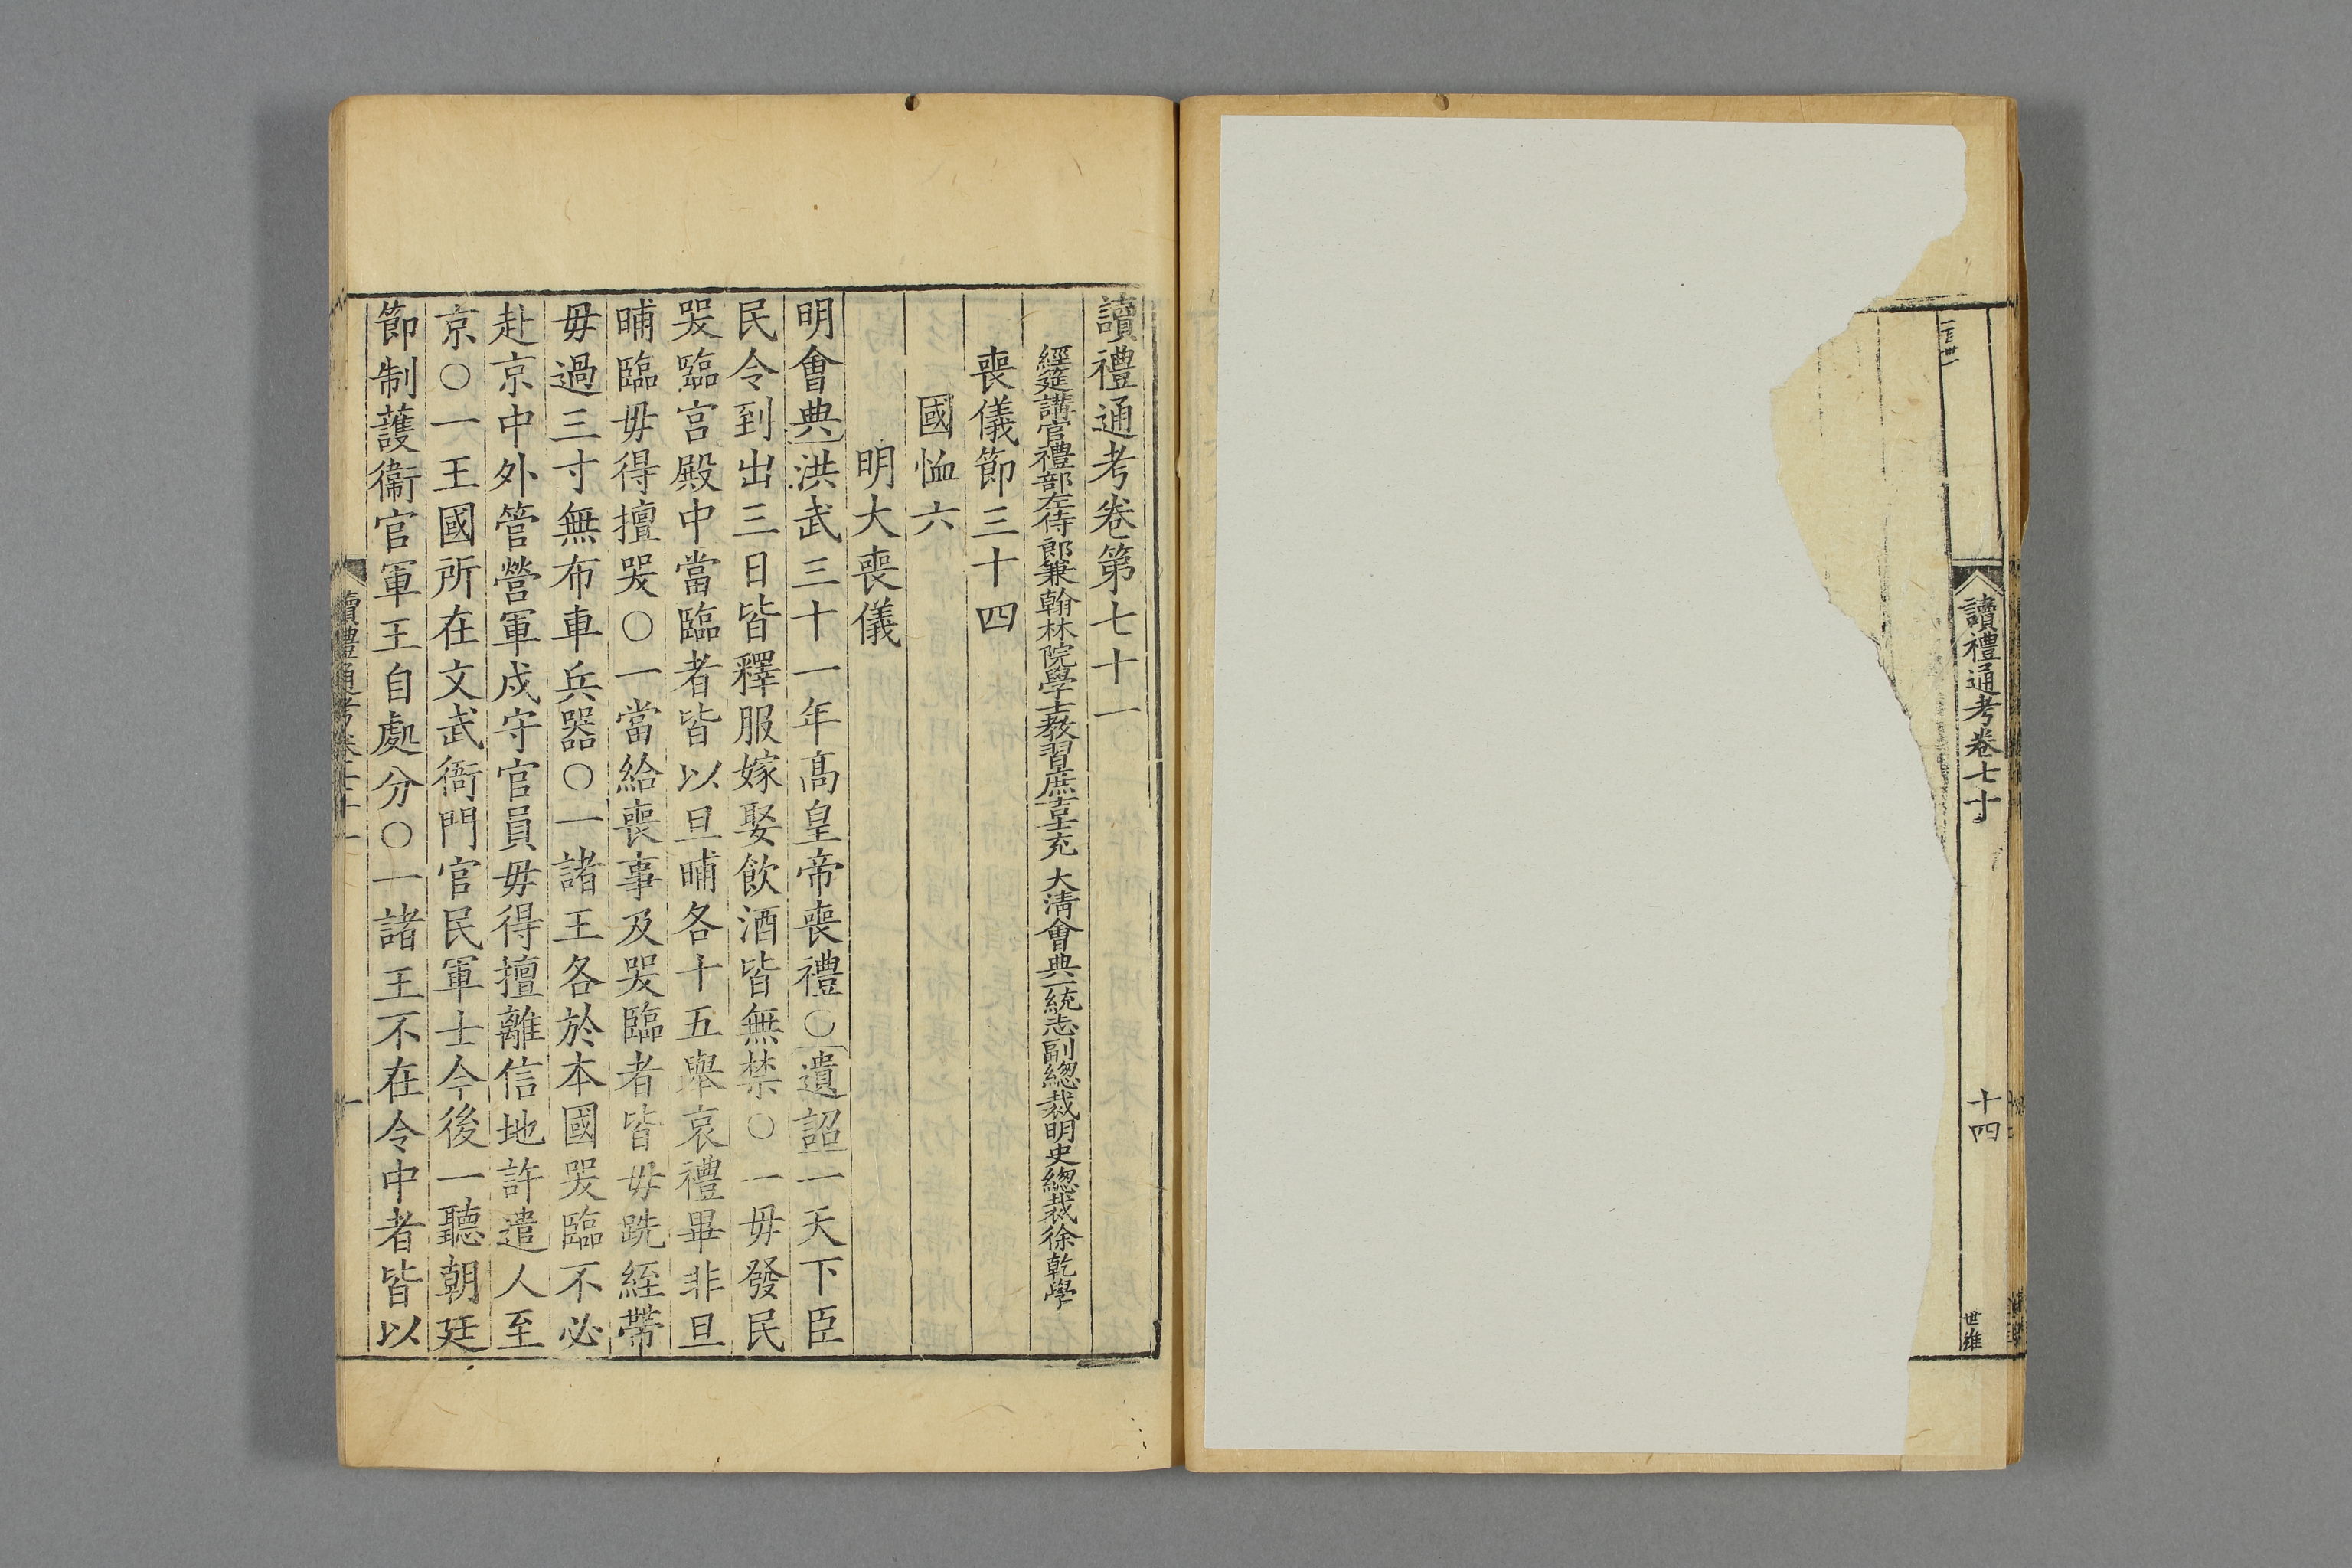 讀禮通考卷七十
十四
世維
讀禮通考卷第七十一
經筵講官禮部左侍郎兼翰林院學士教習庶吉士充 大清會典一統志副總裁明史總裁徐乾學
喪儀節三十四
國恤六
明大喪儀
明會典洪武三十一年高皇帝喪禮○遺詔一天下臣
民令到出三日皆釋服嫁娶飲酒皆無禁○一毋發民
哭臨宮殿中當臨者皆以旦晡各十五舉哀禮畢非旦
晡臨毋得擅哭○一當給喪事及哭臨者皆毋跣絰帶
毋過三寸無布車兵器○一諸王各於本國哭臨不必
赴京中外管營軍戍守官員毋得擅離信地許遣人至
京○一王國所在文武衙門官民軍士今後一聽朝廷
節制護衞官軍王自處分○一諸王不在令中者皆以
讀禮通考卷七十一
一